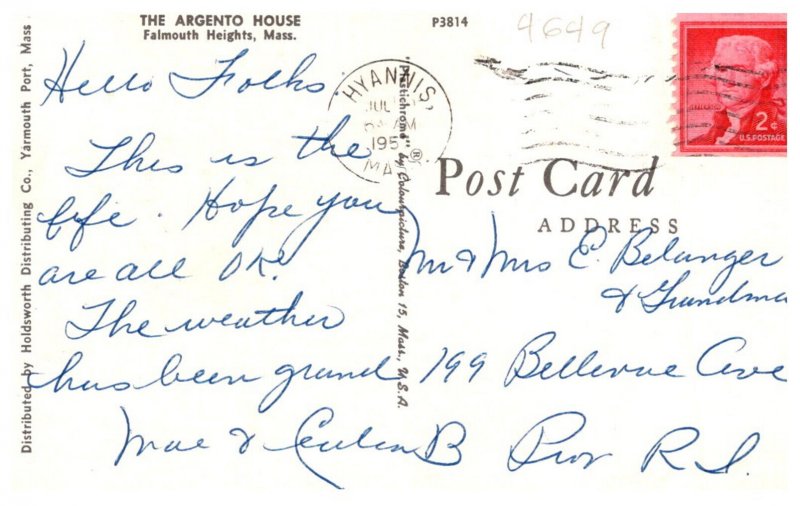 THE ARGENTO HOUSE
Falmouth Heights, Mass.
P3814
4649
Hello Folks.
This is the
life. Hope you
are all OK.
The weather
has been grand
Mae &
B
HYANNIS,
JUL
AM
195
MA
2¢
U.S. POSTAGE
Post Card
ADDRESS
Mr & Mrs E. Belanger
& Grandma
199 Bellevue Ave
Prov R.I.
Distributed by Holdsworth Distributing Co., Yarmouth Port, Mass
"Plastichrome" ® by Colourpicture, Boston 15, Mass., U.S.A.